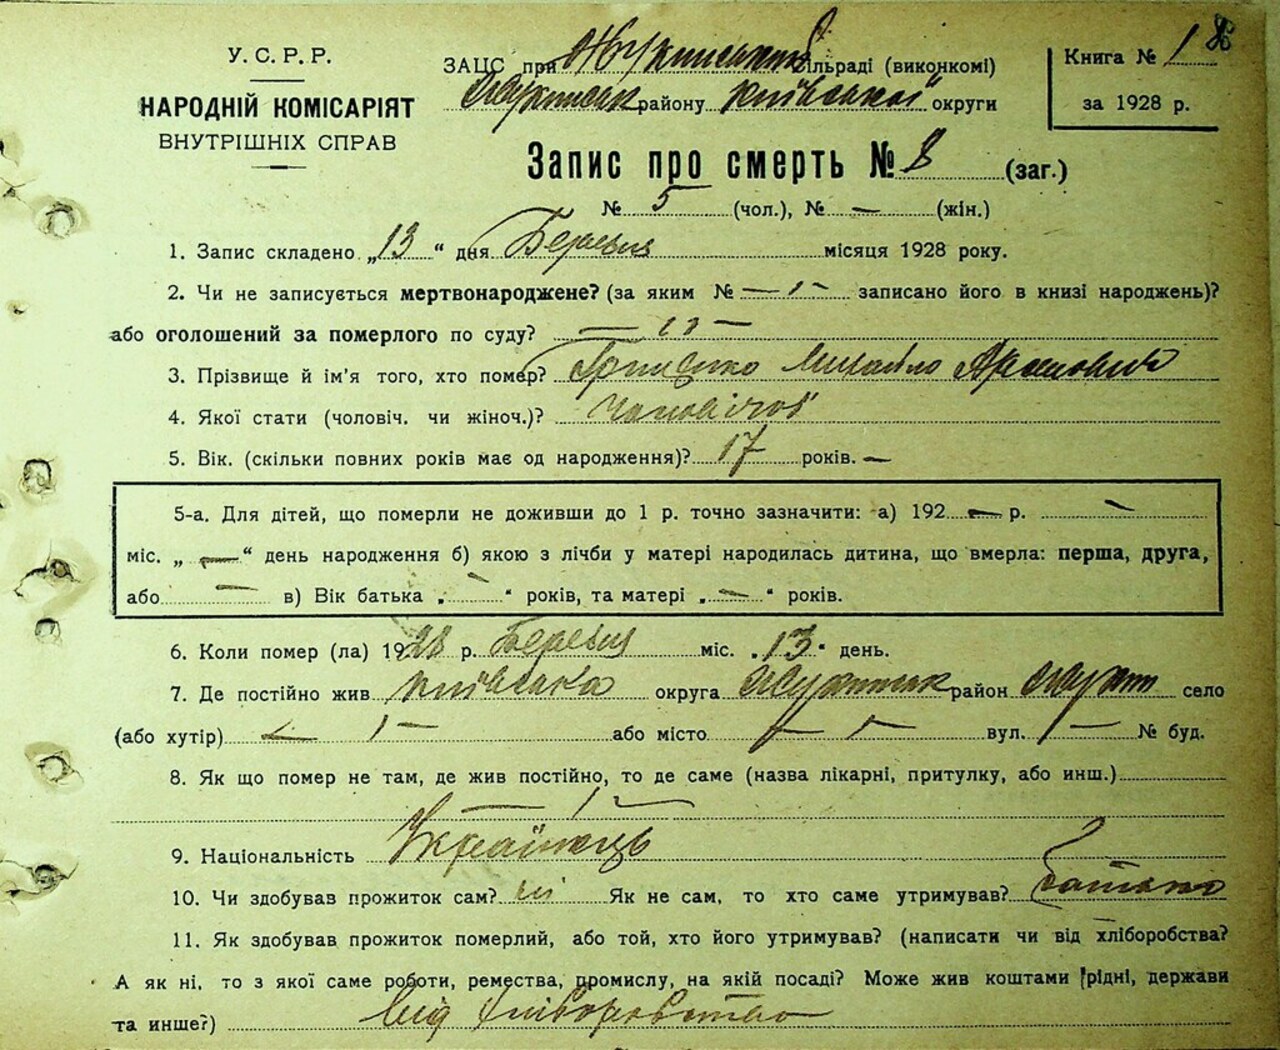 У. С. Р. Р.
НАРОДНІЙ КОМІСАРІЯТ
ВНУТРІШНІХ СПРАВ
ЗАЦС при Жукинській сільраді (виконкомі)
району Київської округи
Книга № 1
за 1928 р.
Запис про смерть № 8 (заг.)
№ 5 (чол.), № — (жін.)
1. Запис складено „13“ дня Березня місяця 1928 року.
2. Чи не записується мертвонароджене? (за яким № — записано його в книзі народжень)?
або оголошений за померлого по суду? —
3. Прізвище й ім'я того, хто помер? Михайло Арсенович
4. Якої стати (чоловіч. чи жіноч.)? Чоловічої
5. Вік. (скільки повних років має од народження)? 17 років. —
5-а. Для дітей, що померли не доживши до 1 р. точно зазначити: а) 192 — р. —
міс. „ — “ день народження б) якою з лічби у матері народилась дитина, що вмерла: перша, друга,
або — в) Вік батька „ — “ років, та матері „ — “ років.
6. Коли помер (ла) 1928 р. Березня міс. „13“ день.
7. Де постійно жив Київська округа район село
(або хутір) — або місто — вул. — № буд.
8. Як що помер не там, де жив постійно, то де саме (назва лікарні, притулку, або инш.)
—
9. Національність Українець
10. Чи здобував прожиток сам? ні Як не сам, то хто саме утримував? батько
11. Як здобував прожиток померлий, або той, хто його утримував? (написати чи від хліборобства?
А як ні, то з якої саме роботи, ремества, промислу, на якій посаді? Може жив коштами рідні, держави
та инше?) від хліборобства